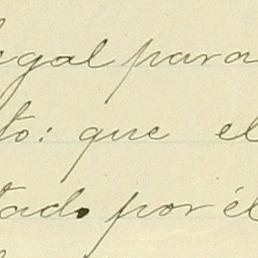 egal para
to: que el
tado por él